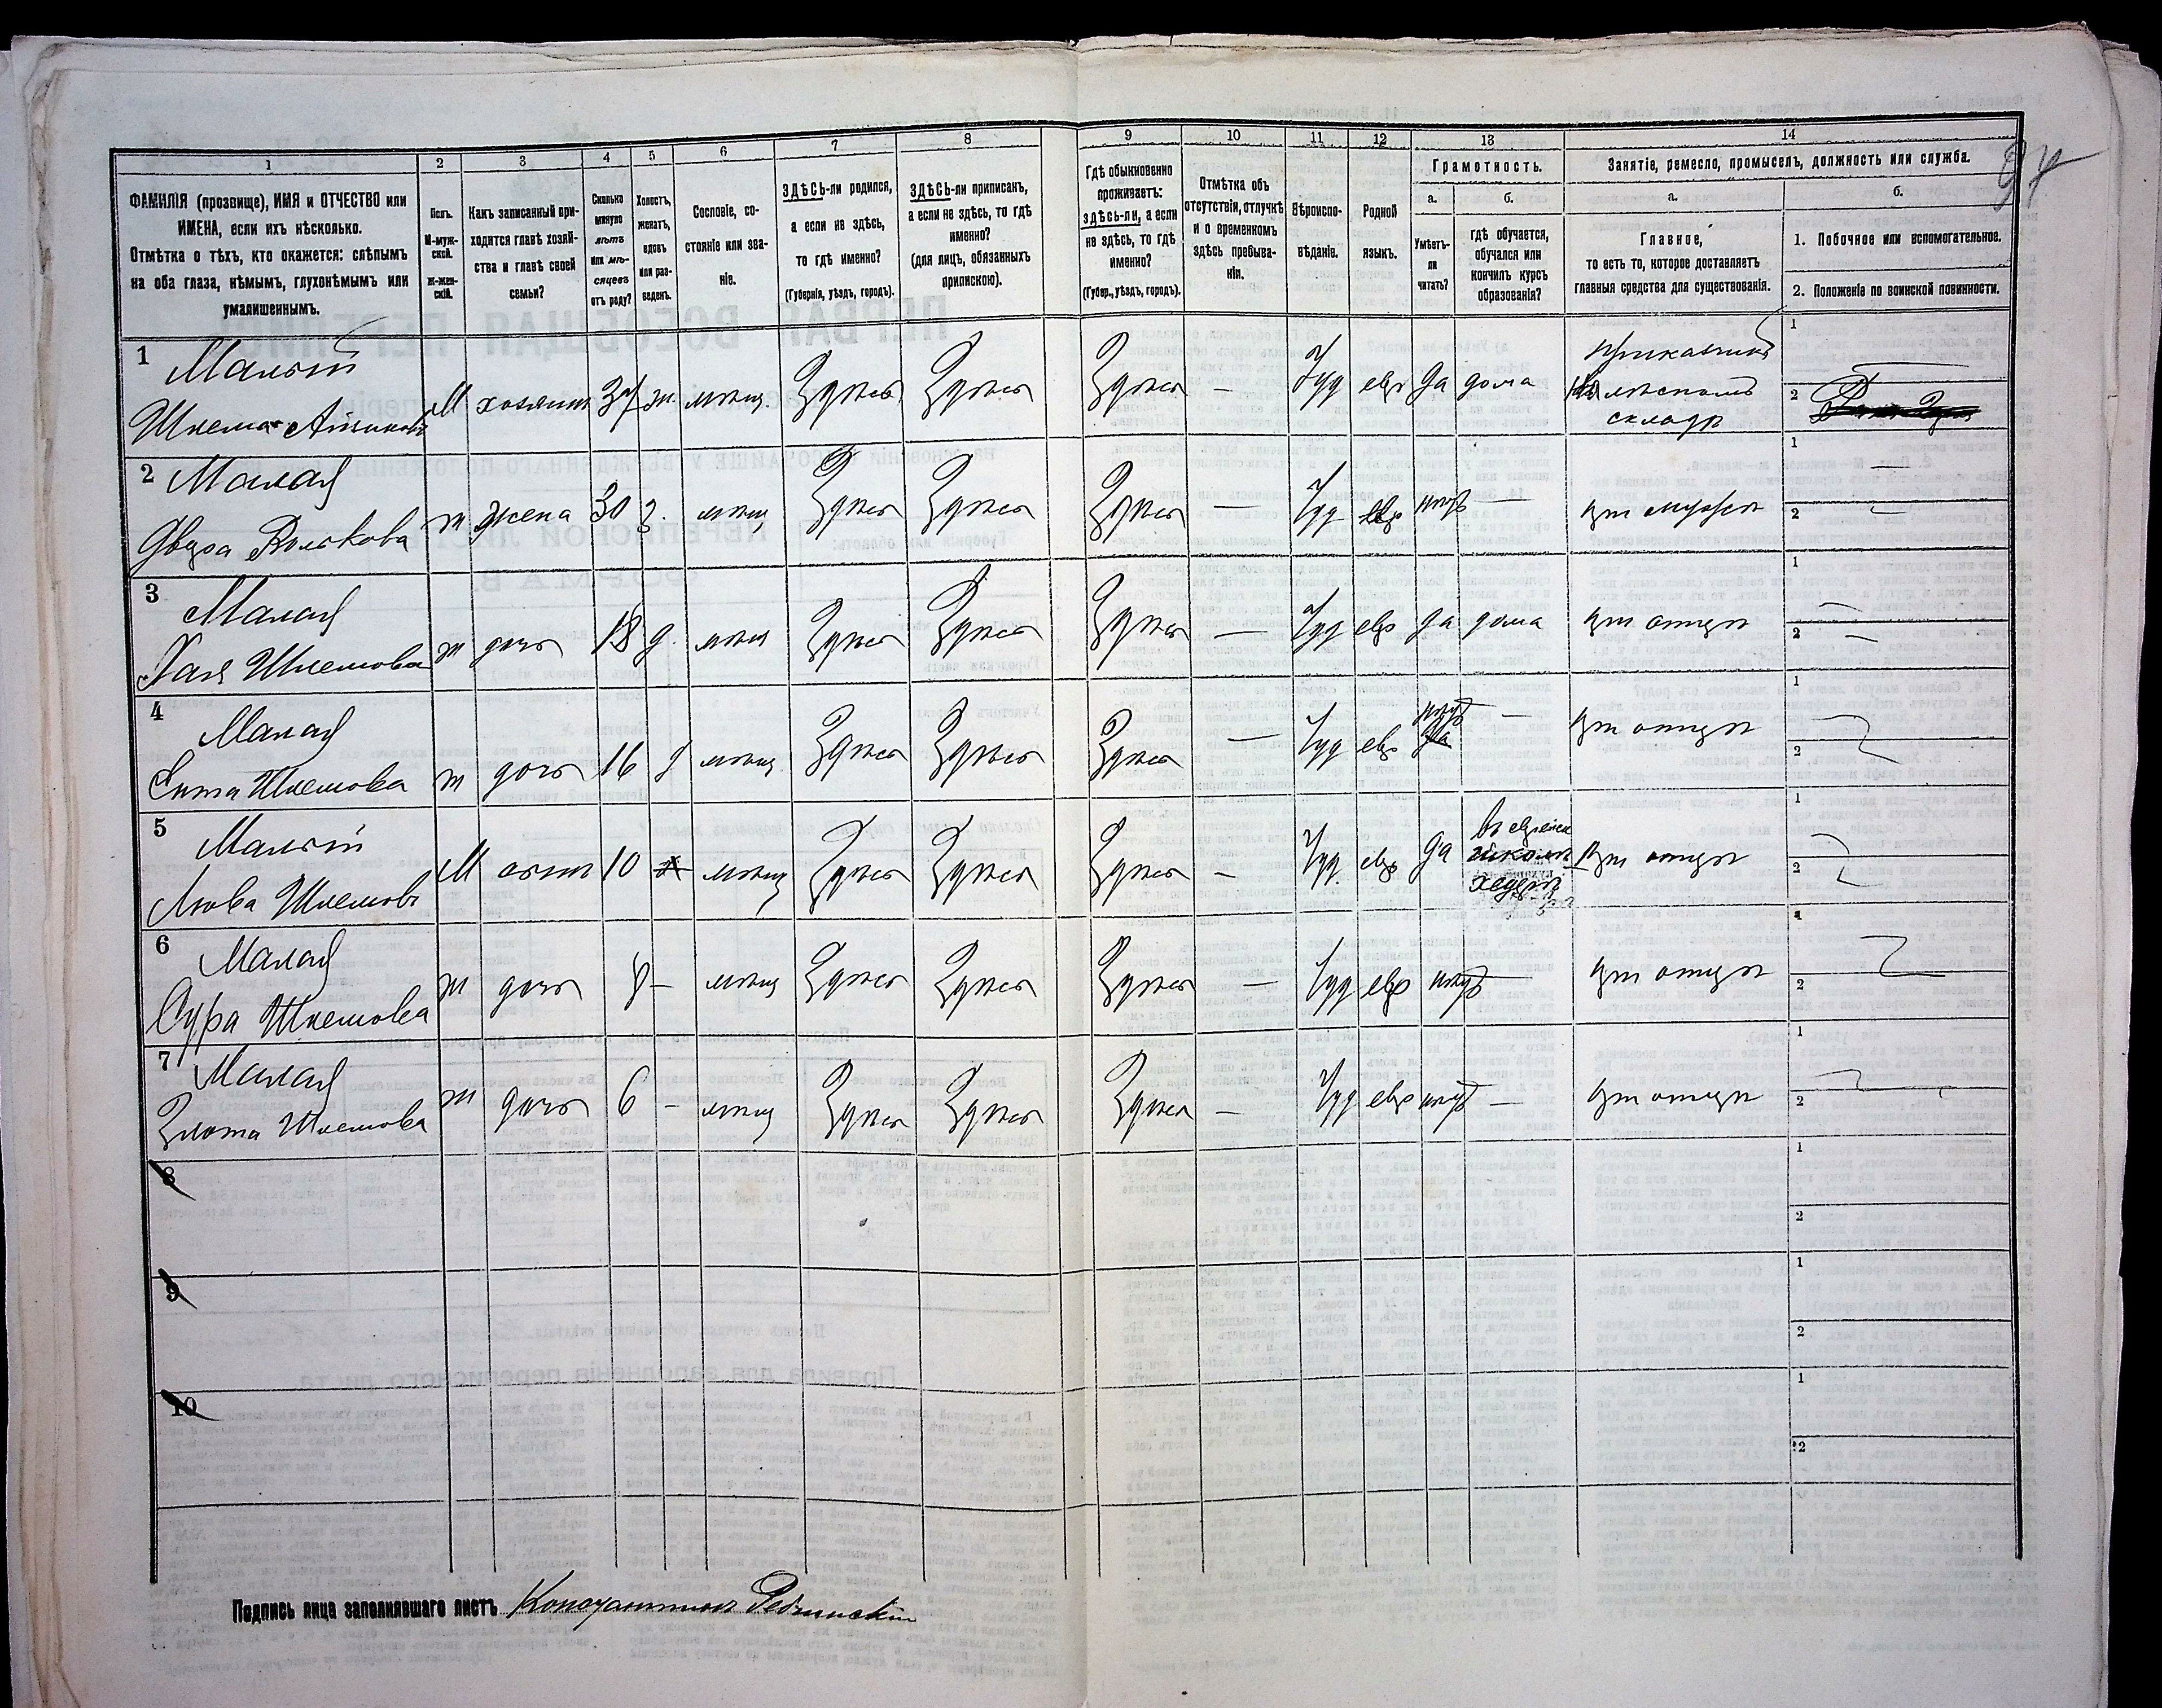 1 2 3 4 5 6 7 8 9 10 11 12 13 14
ФАМИЛІЯ (прозвище), ИМЯ и ОТЧЕСТВО или
ИМЕНА, если ихъ нѣсколько.
Отмѣтка о тѣхъ, кто окажется: слѣпымъ
на оба глаза, нѣмымъ, глухонѣмымъ или
умалишеннымъ.
Полъ.
М-муж-
ской.
Ж-жен-
скій.
Какъ записанный при-
ходится главѣ хозяй-
ства и главѣ своей
семьи?
Сколько
минуло
лѣтъ
или мѣ-
сяцевъ
отъ роду?
Холостъ,
женатъ,
вдовъ
или раз-
веденъ.
Сословіе, со-
стояніе или зва-
ніе.
ЗДѢСЬ-ли родился,
а если не здѣсь,
то гдѣ именно?
(Губернія, уѣздъ, городъ).
ЗДѢСЬ-ли приписанъ,
а если не здѣсь, то гдѣ
именно?
(для лицъ, обязанныхъ
припискою).
Гдѣ обыкновенно
проживаетъ:
здѣсь-ли, а если
не здѣсь, то гдѣ
именно?
(Губер., уѣздъ, городъ).
Отмѣтка объ
отсутствіи, отлучкѣ
и о временномъ
здѣсь пребыва-
ніи.
Вѣроиспо-
вѣданіе.
Родной
языкъ.
Грамотность.
а.
Умѣетъ-
ли
читать?
б.
гдѣ обучается,
обучался или
кончилъ курсъ
образованія?
Занятіе, ремесло, промыселъ, должность или служба.
а.
Главное,
то есть то, которое доставляетъ
главныя средства для существованія.
б.
1. Побочное или вспомогательное.
2. Положеніе по воинской повинности.
1 Малый
Шлема М хозяинъ 37 ж. мѣщ Здѣсь Здѣсь Здѣсь — Іуд евр Да дома
приказчикъ
складѣ
1
2
2 Малая
Двейра ж жена 30 з. мѣщ Здѣсь Здѣсь Здѣсь — Іуд евр нѣтъ — при мужѣ
1 —
2 —
3 Малая
Хая Шлемова ж дочь 18 д. мѣщ Здѣсь Здѣсь Здѣсь — Іуд евр да дома при отцѣ
1 —
2 —
4 Малая
Шлемова ж дочь 16 д мѣщ Здѣсь Здѣсь Здѣсь — Іуд евр нѣтъ — при отцѣ
1
2
5 Малый
Шлемовъ М сынъ 10 мѣщ Здѣсь Здѣсь Здѣсь — Іуд. евр да
въ еврейск
школѣ
хедерѣ
при отцѣ
1
2
6 Малая
Сура Шлемова ж дочь 8 — мѣщ Здѣсь Здѣсь Здѣсь — Іуд евр нѣтъ — при отцѣ
1
2
7 Малая
Злота Шлемова ж дочь 6 — мѣщ Здѣсь Здѣсь Здѣсь — Іуд евр нѣтъ — при отцѣ
1
2
8
1
2
9
1
2
10
1
2
Подпись лица заполнявшаго листъ Константинъ